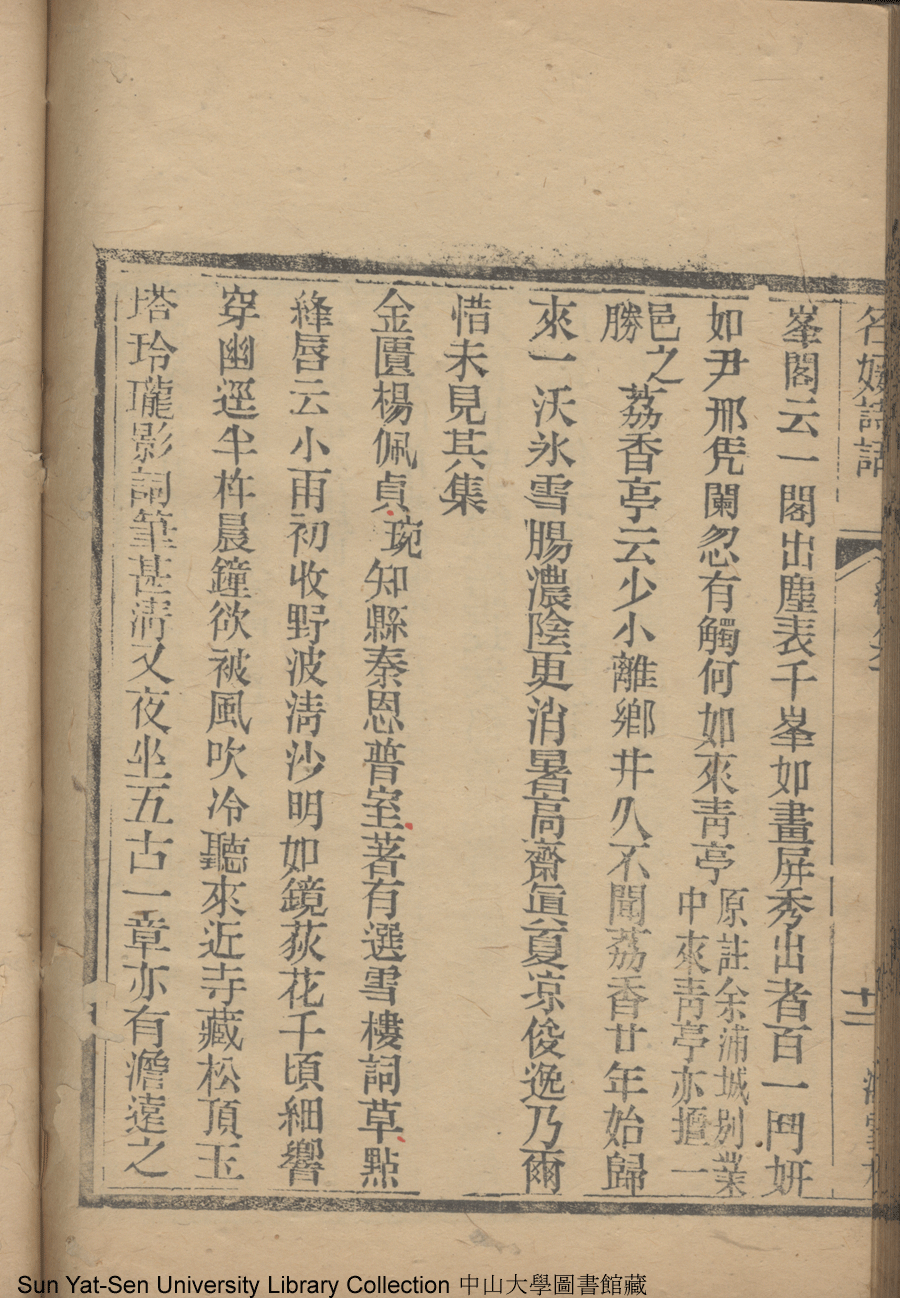 名媛詩話
十二
峯閣云一閣出塵表千峯如畫屏秀出者百一鬥妍
如尹邢凭闌忽有觸何如來青亭原註余浦城別業中來青亭亦擅一
邑之勝荔香亭云少小離鄉井久不聞荔香廿年始歸
來一沃氷雪腸濃陰更消暑高齋眞夏凉俊逸乃爾
惜未見其集
金匱楊佩貞琬知縣秦恩普室著有選雪樓詞草點
絳唇云小雨初收野波淸沙明如鏡荻花千頃細響
穿幽逕半杵晨鐘欲被風吹冷聽來近寺藏松頂玉
塔玲瓏影詞筆甚淸又夜坐五古一章亦有澹遠之
Sun Yat-Sen University Library Collection 中山大學圖書館藏